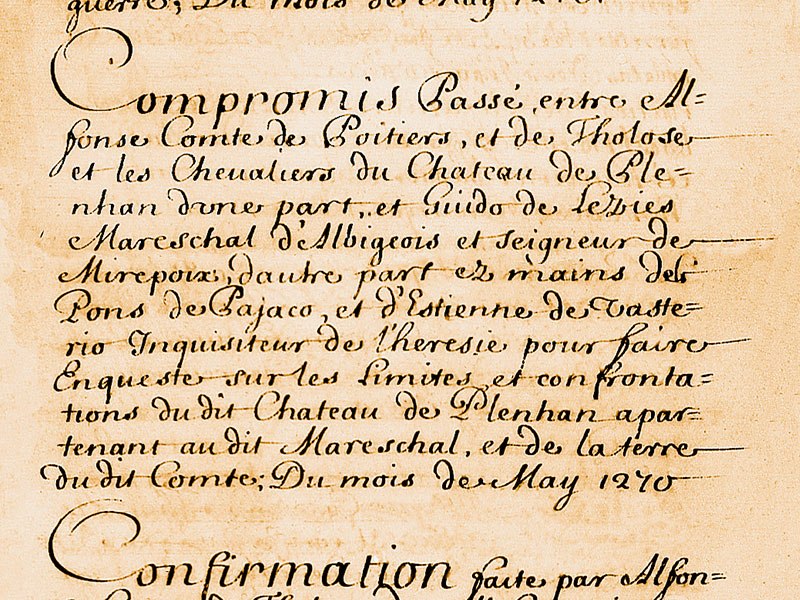 guerre; Du mois de May 1270.
Compromis Passé entre Al=
fonse Comte de Poitiers, et de Tholose
et les Chevaliers du Chateau de Ple=
nhan dune part, et Guido de Levies
Mareschal d'Albigeois et seigneur de
Mirepoix, dautre part ez mains de
Pons de Pajaco, et d'Estienne de Vaste=
rio Inquisiteur de l'heresie pour faire
Enqueste sur les Limites et confronta=
tions du dit Chateau de Plenhan apar=
tenant au dit Mareschal, et de la terre
du dit Comte; Du mois de May 1270
Confirmation faite par Alfon=